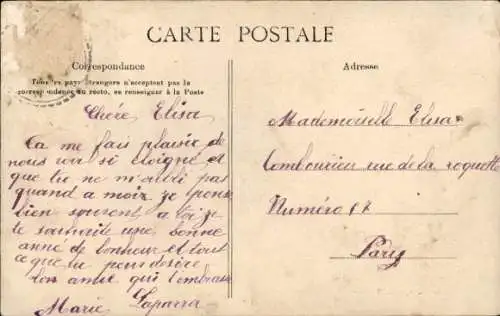 CARTE POSTALE
Correspondance
Tous les pays étrangers n'acceptent pas la
correspondance au recto, se renseigner à la Poste
Adresse
Chére Elisa
Ca me fais plaisir de
nous voir si éloigné et
que tu ne m'oubli pas
quand a moix je pense
bien souvent a toi je
te souhaite une bonne
anné de bonheur et tout
ce que tu peus désiré
ton amie qui t'embrasse
Marie Laparra
Mademoiselle Elisa
rue de la roquette
Numéro
Paris